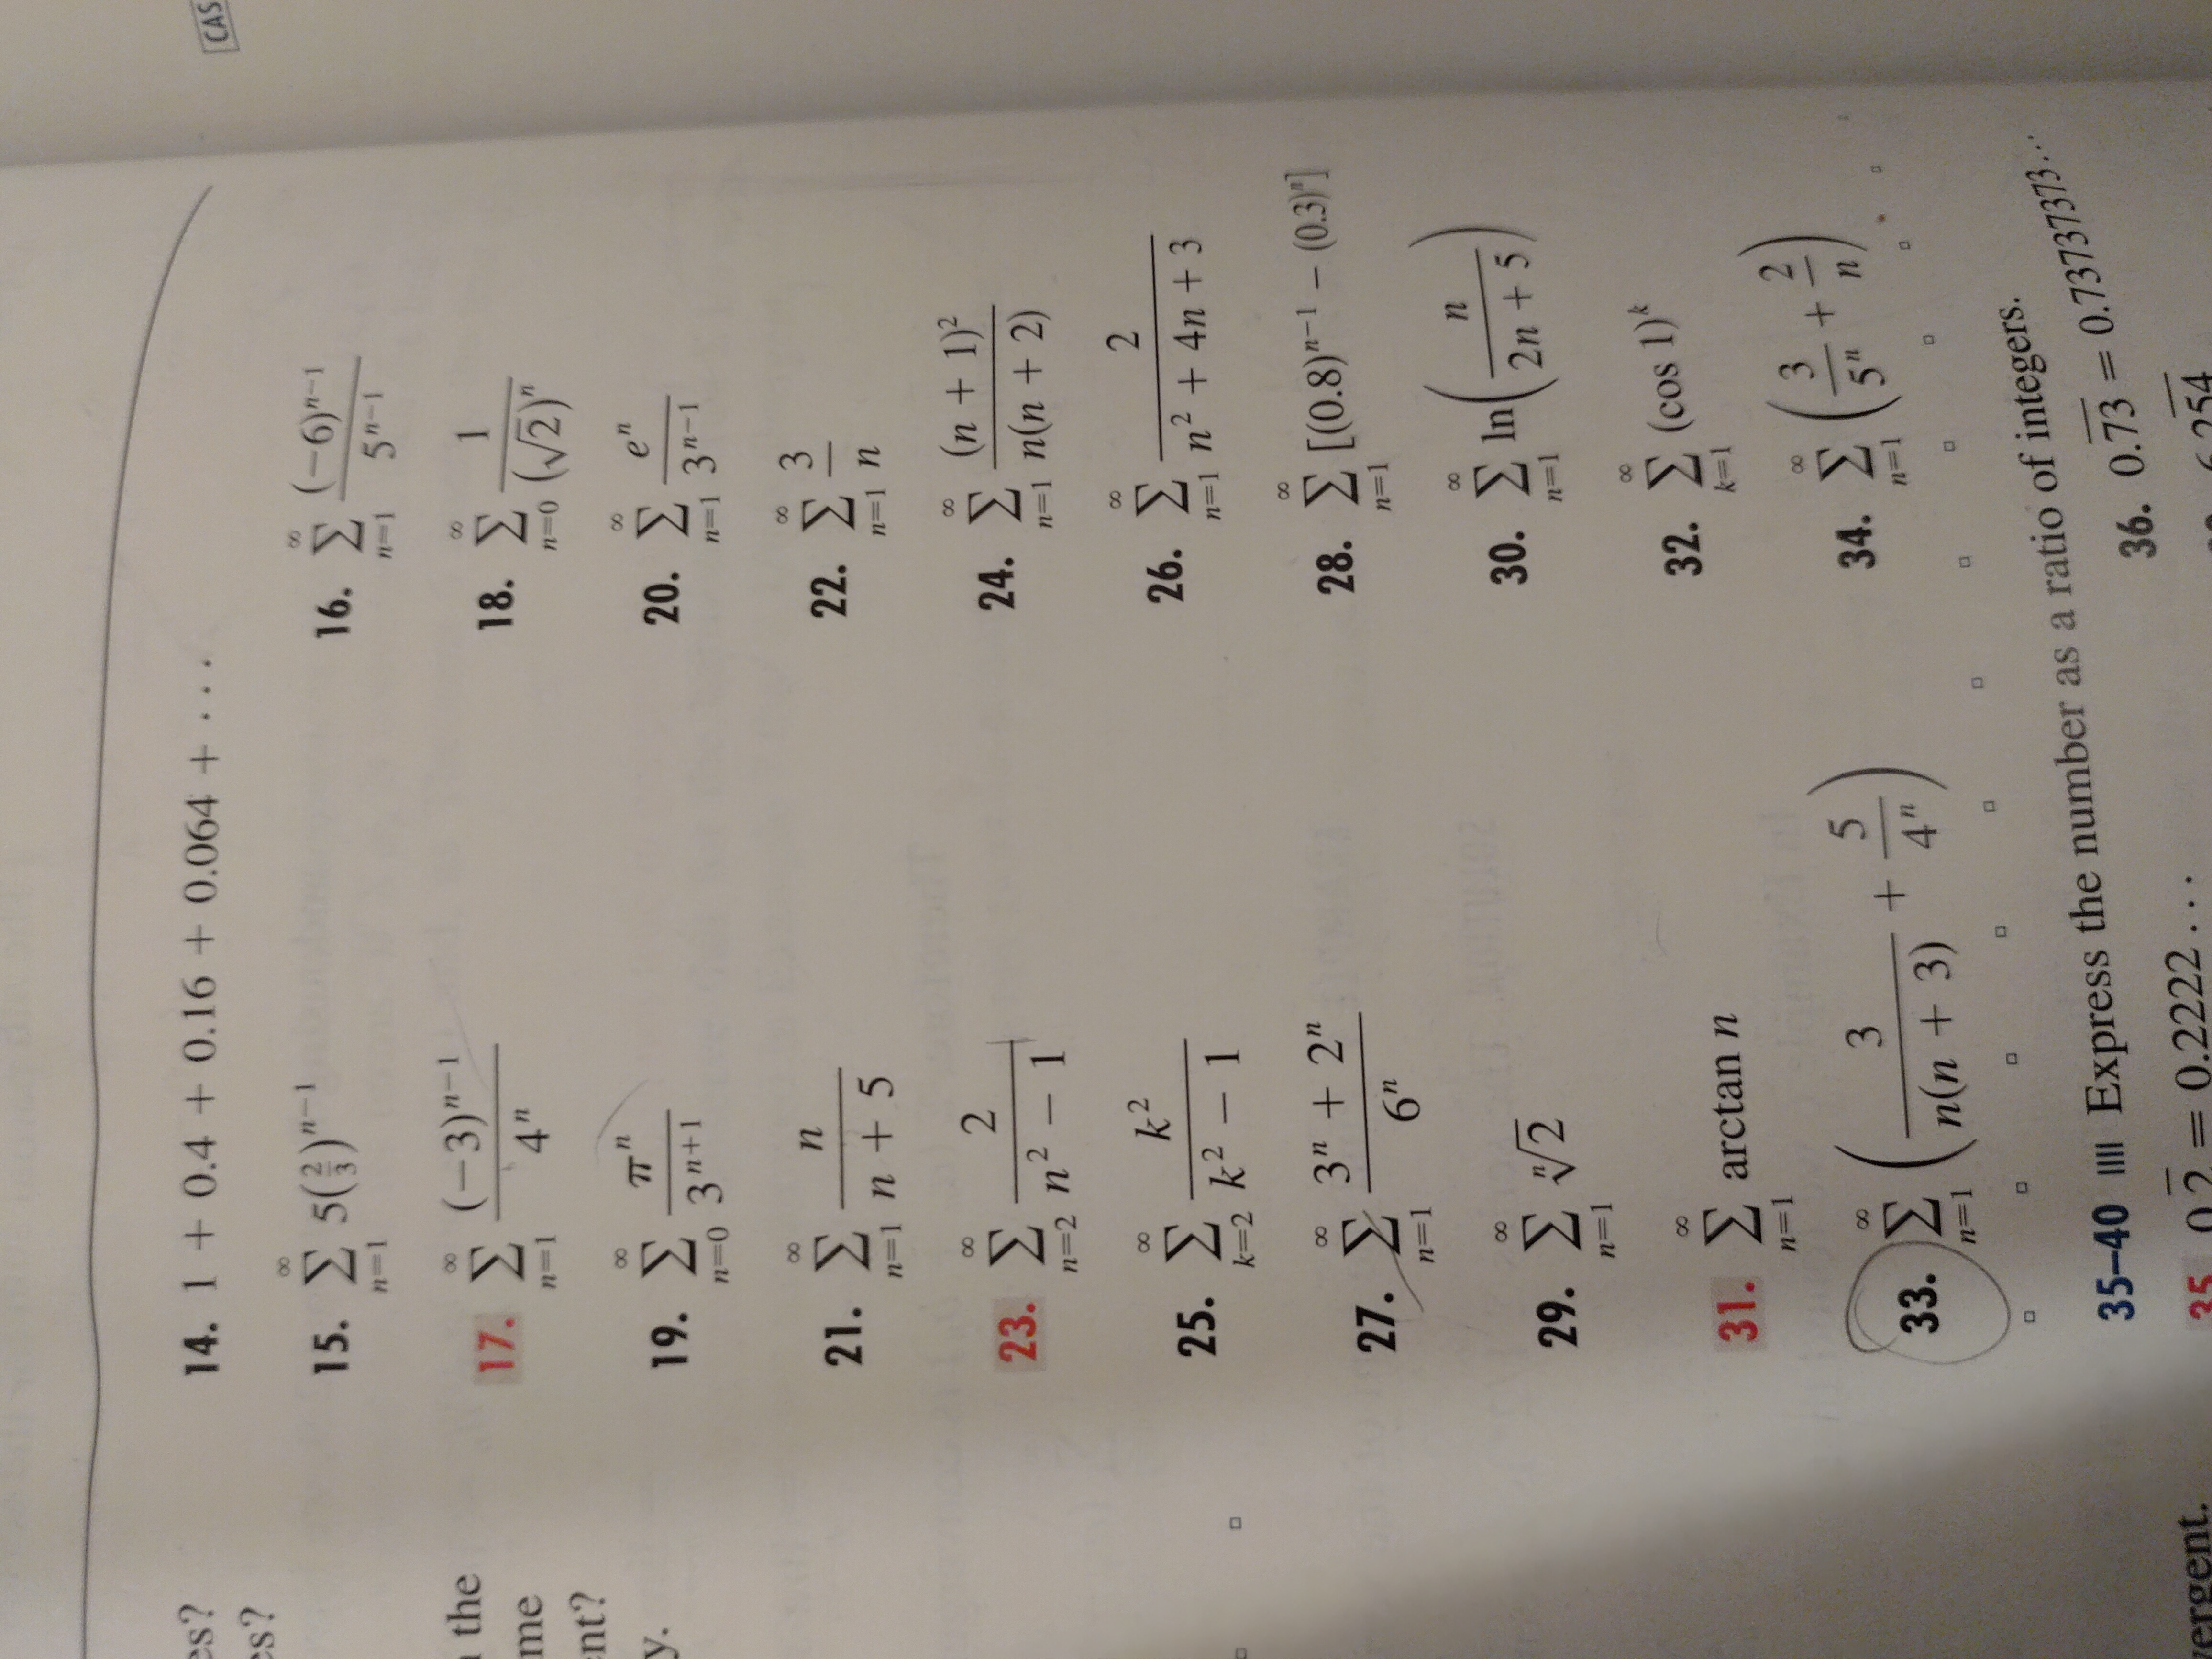 CAS
14. 1 + 0.4 + 0.16 + 0.064 + · · ·
15. ∑_{n=1}^{∞} 5(2/3)^{n−1}
16. ∑_{n=1}^{∞} (−6)^{n−1} / 5^{n−1}
17. ∑_{n=1}^{∞} (−3)^{n−1} / 4^n
18. ∑_{n=0}^{∞} 1 / (√2)^n
19. ∑_{n=0}^{∞} π^n / 3^{n+1}
20. ∑_{n=1}^{∞} e^n / 3^{n−1}
21. ∑_{n=1}^{∞} n / (n + 5)
22. ∑_{n=1}^{∞} 3 / n
23. ∑_{n=2}^{∞} 2 / (n² − 1)
24. ∑_{n=1}^{∞} (n + 1)² / n(n + 2)
25. ∑_{k=2}^{∞} k² / (k² − 1)
26. ∑_{n=1}^{∞} 2 / (n² + 4n + 3)
27. ∑_{n=1}^{∞} (3^n + 2^n) / 6^n
28. ∑_{n=1}^{∞} [(0.8)^{n−1} − (0.3)^n]
29. ∑_{n=1}^{∞} ⁿ√2
30. ∑_{n=1}^{∞} ln(n / (2n + 5))
31. ∑_{n=1}^{∞} arctan n
32. ∑_{k=1}^{∞} (cos 1)^k
33. ∑_{n=1}^{∞} (3 / n(n + 3) + 5 / 4^n)
34. ∑_{n=1}^{∞} (3 / 5^n + 2 / n)
35–40 Express the number as a ratio of integers.
35. 0.2̅ = 0.2222 . . .
36. 0.7̅3̅ = 0.73737373. . .
the
y.